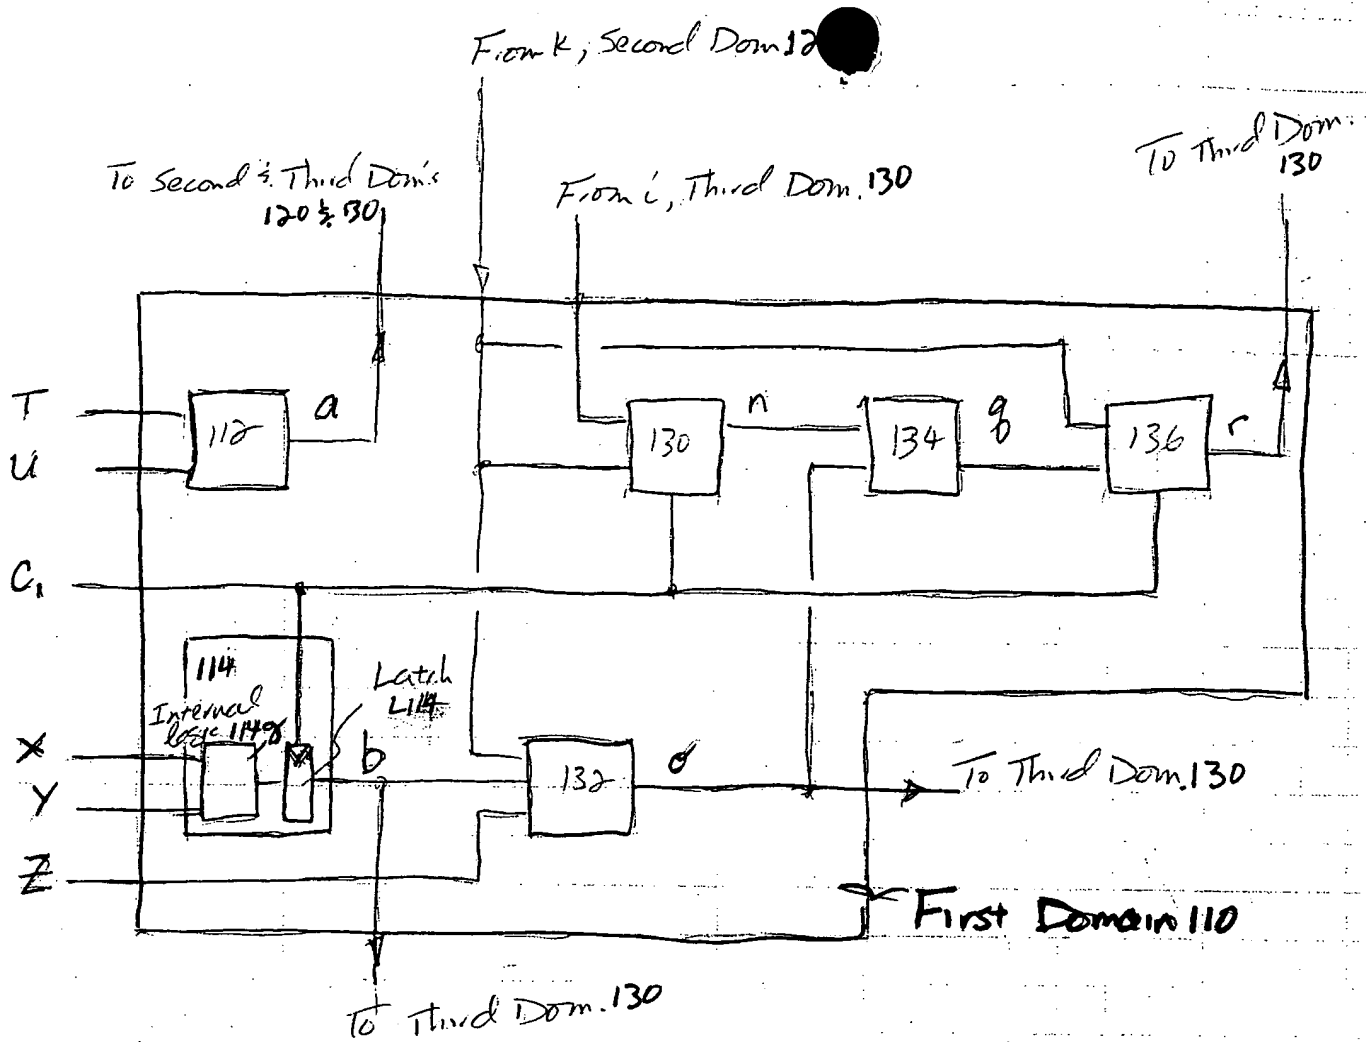 From k, Second Dom 12
To Third Dom.
130
To Second & Third Dom's
120 & 130
From i, Third Dom. 130
T
U
112
a
130
n
134
q
136
r
C1
114
Internal
logic 114g
Latch
L114
X
Y
Z
b
132
o
To Third Dom. 130
First Domain 110
To Third Dom. 130